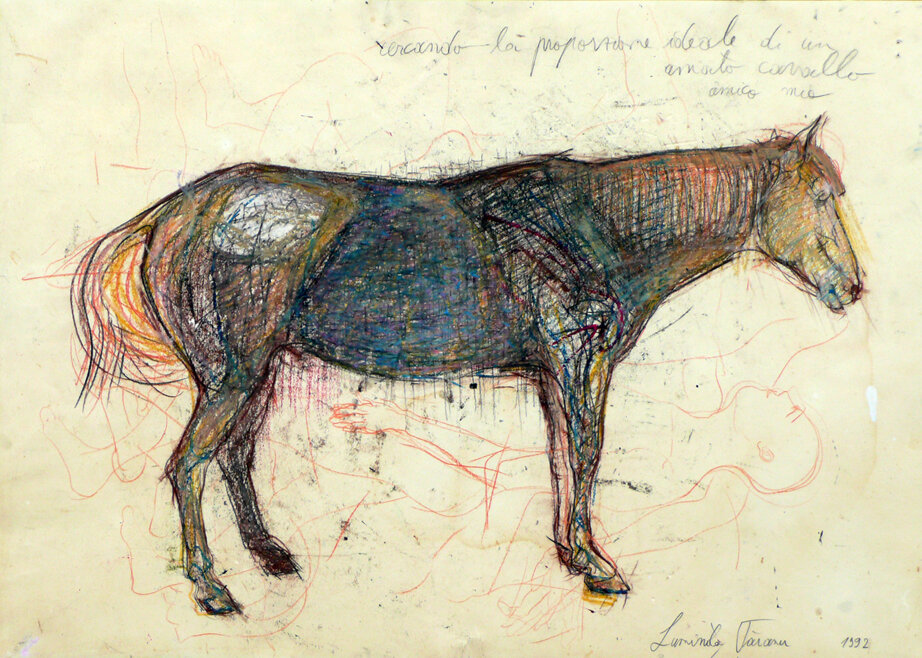 cercando la proporzione ideale di un
amato cavallo
amico mio
Luminița Țăranu 1992